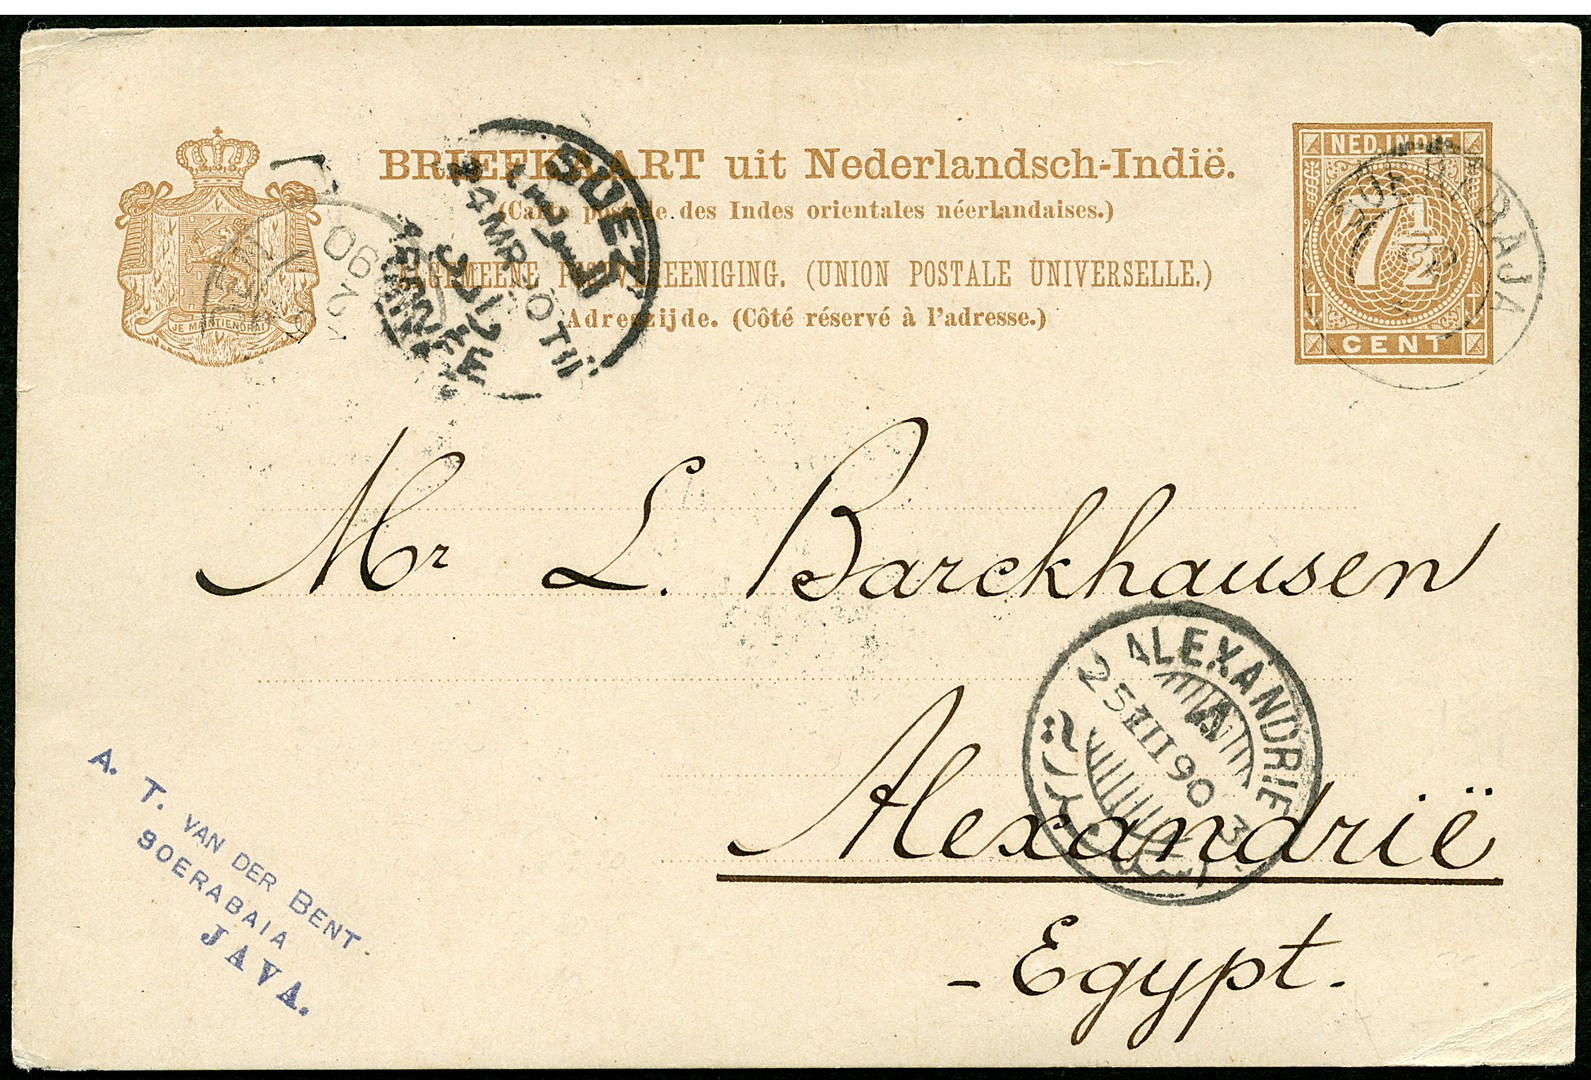 BRIEFKAART uit Nederlandsch-Indië.
(Carte postale des Indes orientales néerlandaises.)
ALGEMEENE POSTVEREENIGING. (UNION POSTALE UNIVERSELLE.)
Adreszijde. (Côté réservé à l'adresse.)
JE MAINTIENDRAI
NED. INDIE
7 1/2
CENT
SUEZ
السويس
24 MR 90 TII
90
Mr L. Barckhausen
ALEXANDRIE
25 III 90
Alexandrië
Egypt.
A. T. VAN DER BENT
SOERABAIA
JAVA.